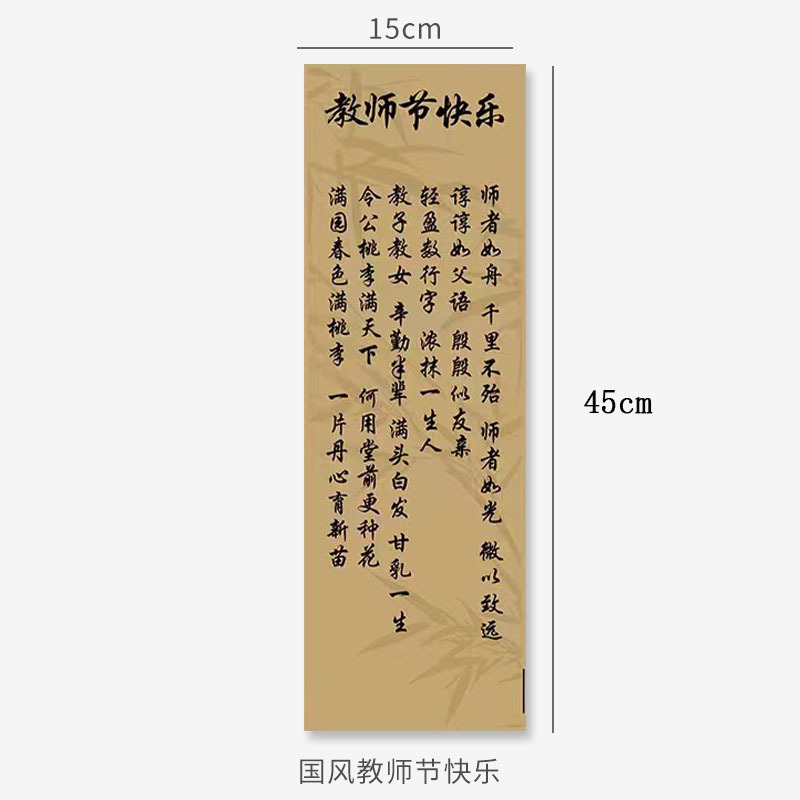 15cm
教师节快乐
师者如舟 千里不殆 师者如光 微以致远
谆谆如父语 殷殷似友亲
轻盈数行字 浓抹一生人
教子教女 辛勤半辈 满头白发 甘乳一生
令公桃李满天下 何用堂前更种花
满园春色满桃李 一片丹心育新苗
45cm
国风教师节快乐